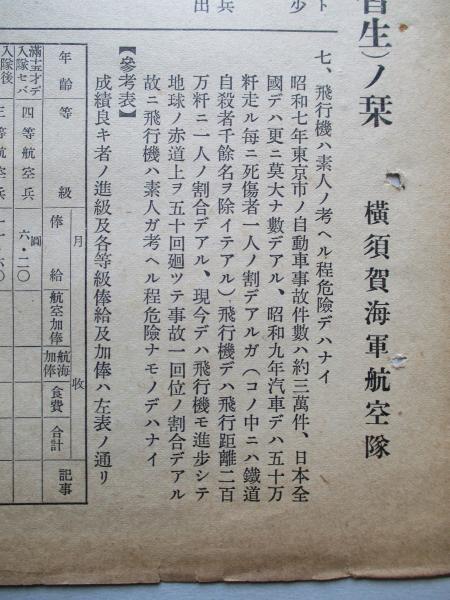 習生)ノ栞　横須賀海軍航空隊
ト
少
兵
出
七、飛行機ハ素人ノ考ヘル程危險デハナイ
昭和七年東京市ノ自動車事故件數ハ約三萬件、日本全
國デハ更ニ莫大ナ數デアル、昭和九年汽車デハ五十万
粁走ル每ニ死傷者一人ノ割デアルガ（コノ中ニハ鐵道
自殺者千餘名ヲ除イテアル）飛行機デハ飛行距離二百
万粁ニ一人ノ割合デアル、現今デハ飛行機モ進步シテ
地球ノ赤道上ヲ五十回廻ツテ事故一回位ノ割合デアル
故ニ飛行機ハ素人ガ考ヘル程危險ナモノデハナイ
【參考表】
成績良キ者ノ進級及各等級俸給及加俸ハ左表ノ通リ
年齡　等級　月收　俸給　航空加俸　航海加俸　食費　合計　記事
滿十五才デ入隊セバ　四等航空兵　圓　六・二〇
入隊後　三等航空兵